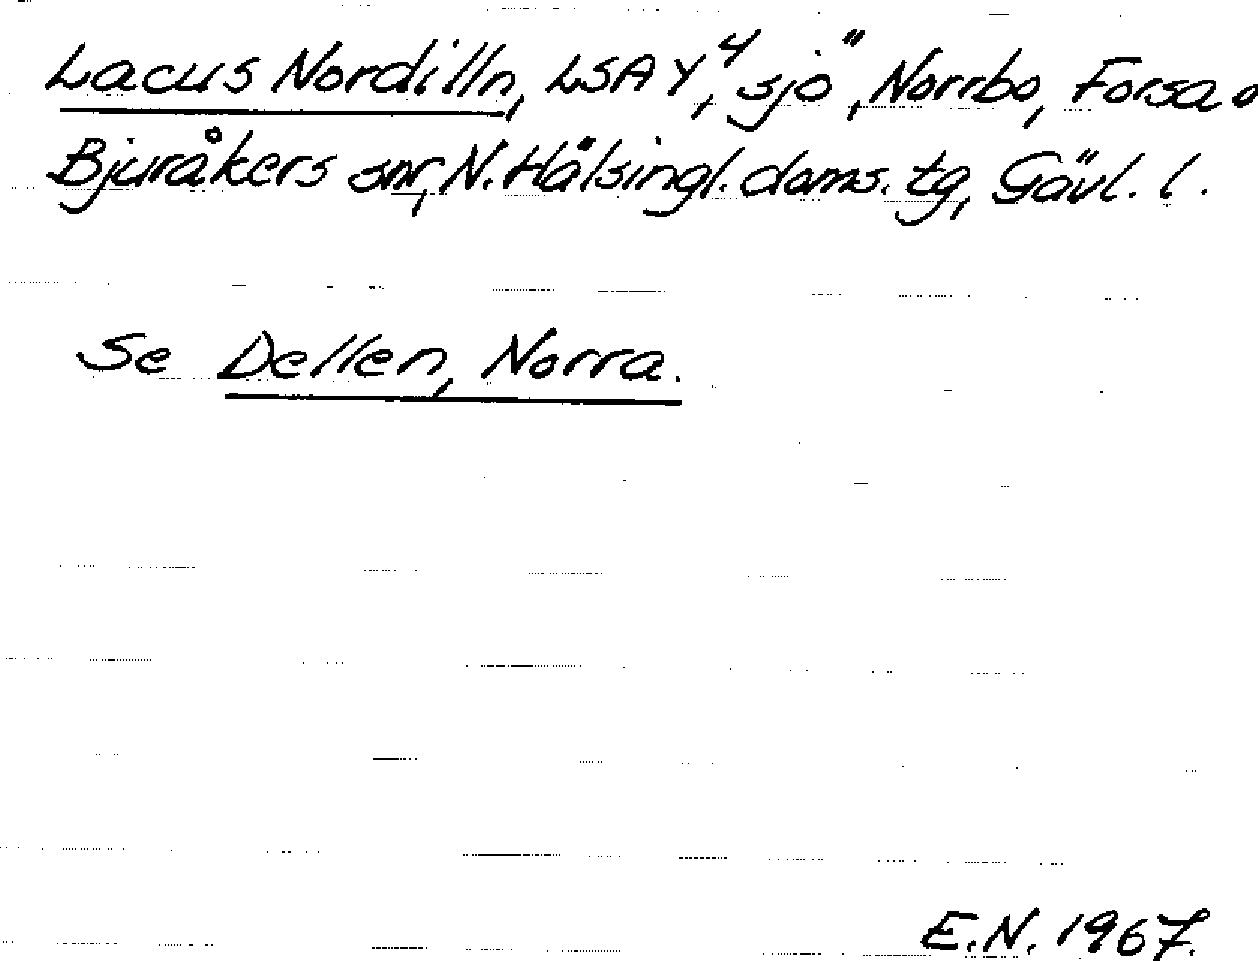 Lacus Nordilln, LSA Y4, sjö, Norrbo, Forsa o
Bjuråkers snr, N. Hälsingl. doms. tg, Gävl. l.
Se Dellen, Norra.
E.N. 1967.